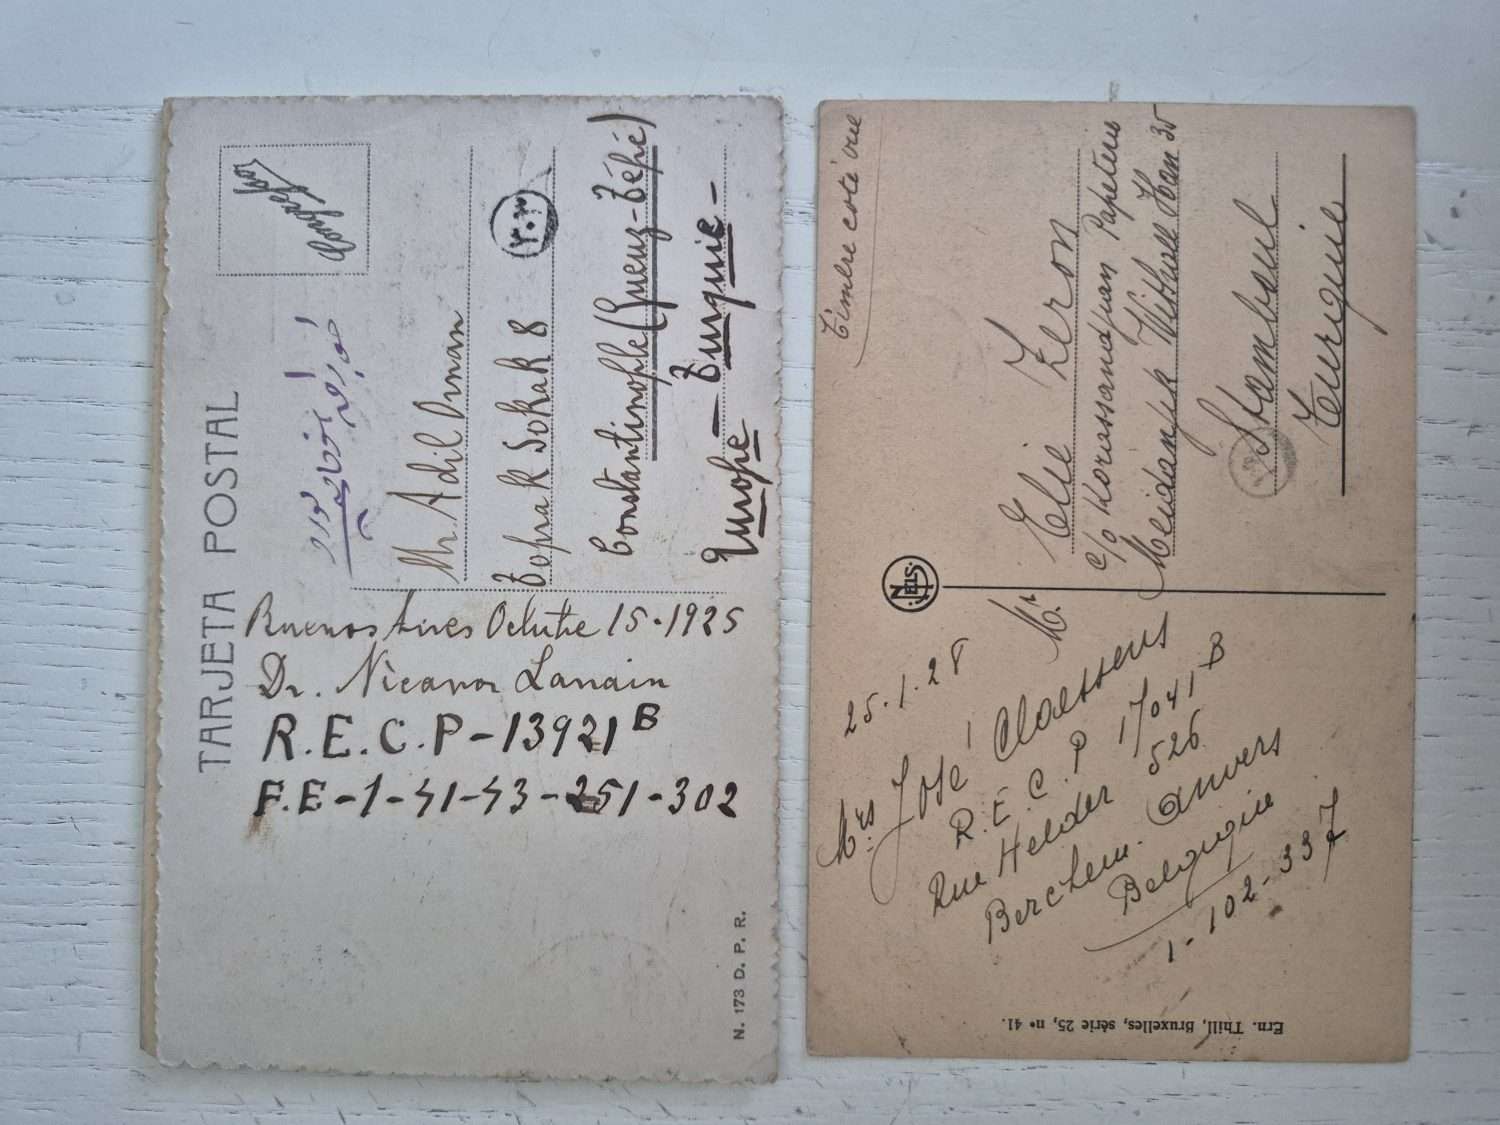 TARJETA POSTAL
Buenos Aires Octubre 15-1925
Dr. Nicanor Lanain
R.E.C.P-13921 B
F.E-1-41-43-251-302
N. 173 D. P. R.
Mr. Adil Osman
Toprak Sokak 8
٢٠٣
Constantinople (Gueuz-Tépé)
Europe — Turquie —
Timbre coté vue
25.1.28
Mrs José Claessens
R.E.C.P 17041 B
Rue Helder 526
Berchem. Anvers
Belgique
1-102-337
NELS
Mr Elie Zeron
c/o Korassandjian Papeterie
Meidandjik Vithall Han 35
Stamboul
Turquie
Ern. Thill, Bruxelles, série 25, no 41.